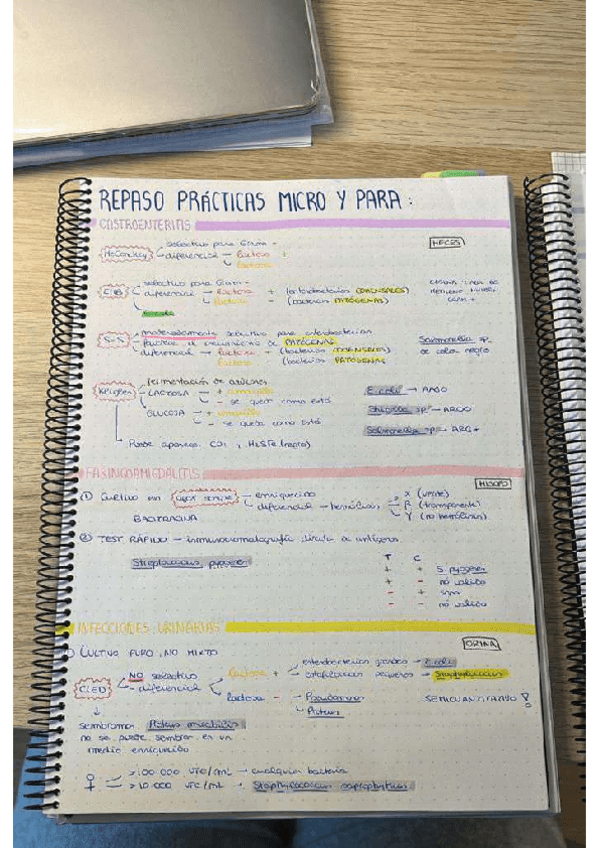 REPASO PRÁCTICAS MICRO Y PARA:
GASTROENTERITIS
HECES
McConkey selectivo para Gram -
diferencial lactosa +
- lactosa
selectivo para Gram -
diferencial lactosa + (enterobacterias COMENSALES)
lactosa - (bacterias PATÓGENAS)
S-S moderadamente selectivo para enterobacterias
favorece el crecimiento de PATÓGENAS
diferencial lactosa + (bacterias COMENSALES)
lactosa - (bacterias PATÓGENAS)
Salmonella sp.
de color negro
Kligler fermentación de azúcares
LACTOSA + amarillo
- se queda como está
GLUCOSA + amarillo
- se queda como está
Puede aparecer CO2 y H2S+Fe (negro)
E.coli → A/AG
Shigella sp →
Salmonella sp →
FARINGOAMIGDALITIS
HISOPO
① Cultivo en AGAR SANGRE enriquecido
diferencial → hemólisis
α (verde)
β (transparente)
γ (no hemólisis)
BACITRACINA
② TEST RÁPIDO - inmunocromatografía directa de antígenos
Streptococcus pyogenes
T C
+ + S. pyogenes
+ - no válido
- +
- - no válido
INFECCIONES URINARIAS
ORINA
① CULTIVO PURO, NO MIXTO
CLED NO selectivo
diferencial
lactosa + enterobacterias grandes → E.coli
estafilococos pequeños → Staphylococcus
lactosa - Pseudomonas
Proteus
SEMICUANTITATIVO!
sembramos Proteus mirabilis
no se puede sembrar en un
medio enriquecido
♀ >100 000 UFC/mL → cualquier bacteria
>10 000 UFC/mL → Staphylococcus saprophyticus